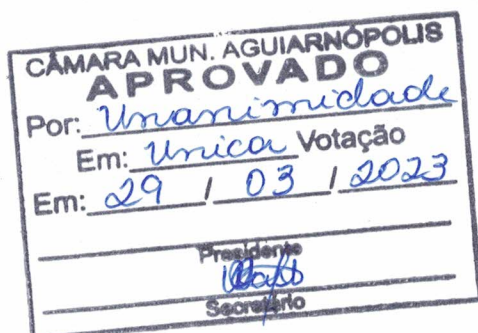 CÂMARA MUN. AGUIARNÓPOLIS
APROVADO
Por: Unanimidade
Em: Unica Votação
Em: 29 / 03 / 2023
Presidente
Secretário